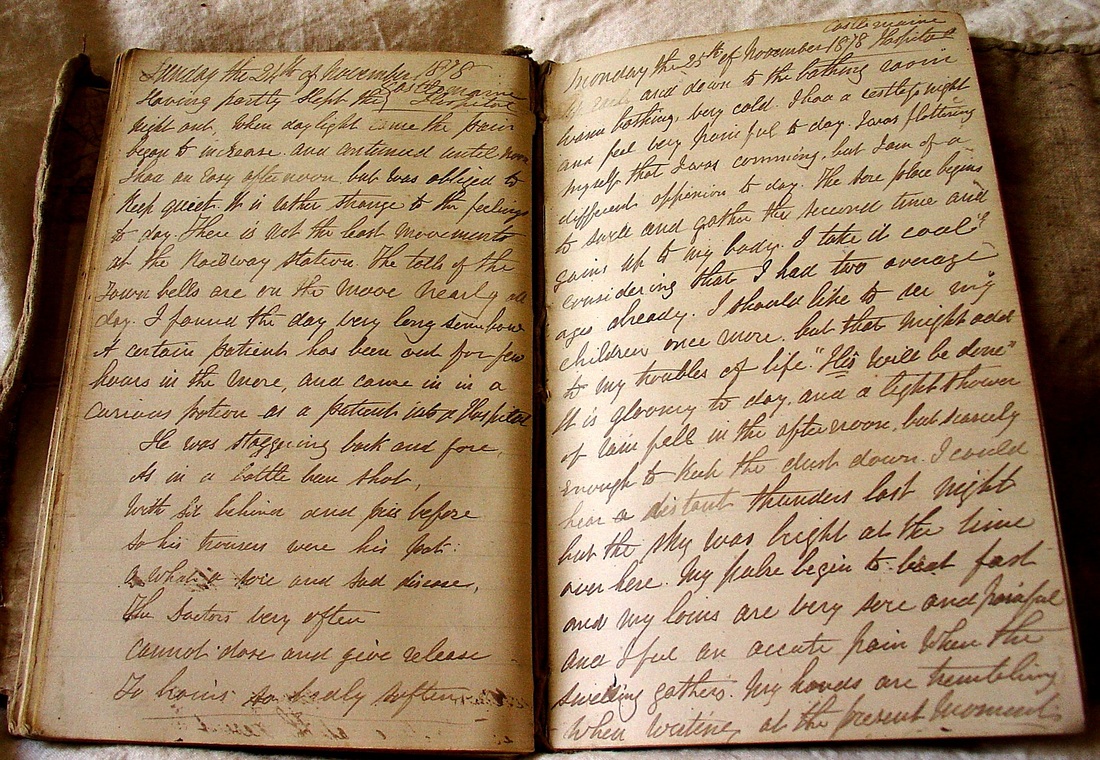 Sunday the 24th of November 1878
Castlemaine
Having partly slept the Hospital
night out, When daylight came the pain
began to increase. and continued until noon
I had an Easy afternoon, but was obliged to
Keep queet. It is rather strange to the feelings
to day. There is not the least movements
at the Railway Station. The tolls of the
Town bells are on the move nearly all
day. I found the day very long somehow
A certain patient has been out for few
hours in the more, and came in in a
curious potion as a patient into a Hospital
He was staggering back and fore,
As in a battle been shot,
With Sit behind and piss before
So his trousers were his pot.
What a sore and sad disease,
The Doctors very often
Cannot dose and give release
To brains so badly soften
Castlemaine
Monday the 25th of November 1878 Hospital
and down to the bathing room
warm bathing, very cold. I had a restless night
and feel very painful to day. I was flattering
myself that I was comming, but I am of a
different oppinion to day. The sore place begins
to swell and gather the second time and
gains up to my body. I take it cool
considering that I had two average
ages already. I should like to see my
children once more. but that might add
to my troubles of life. "His Will be done"
It is gloomy to day. and a light shower
of rain fell in the afternoon, but scarsely
enough to Keep the dust down. I could
hear a distant thunders last night
but the sky was bright at the time
over here. My pulse begin to beat fast
and my loins are very sore and painful
and I feel an accute pain When the
swelling gathers. My hands are trembling
When writing at the present moment.